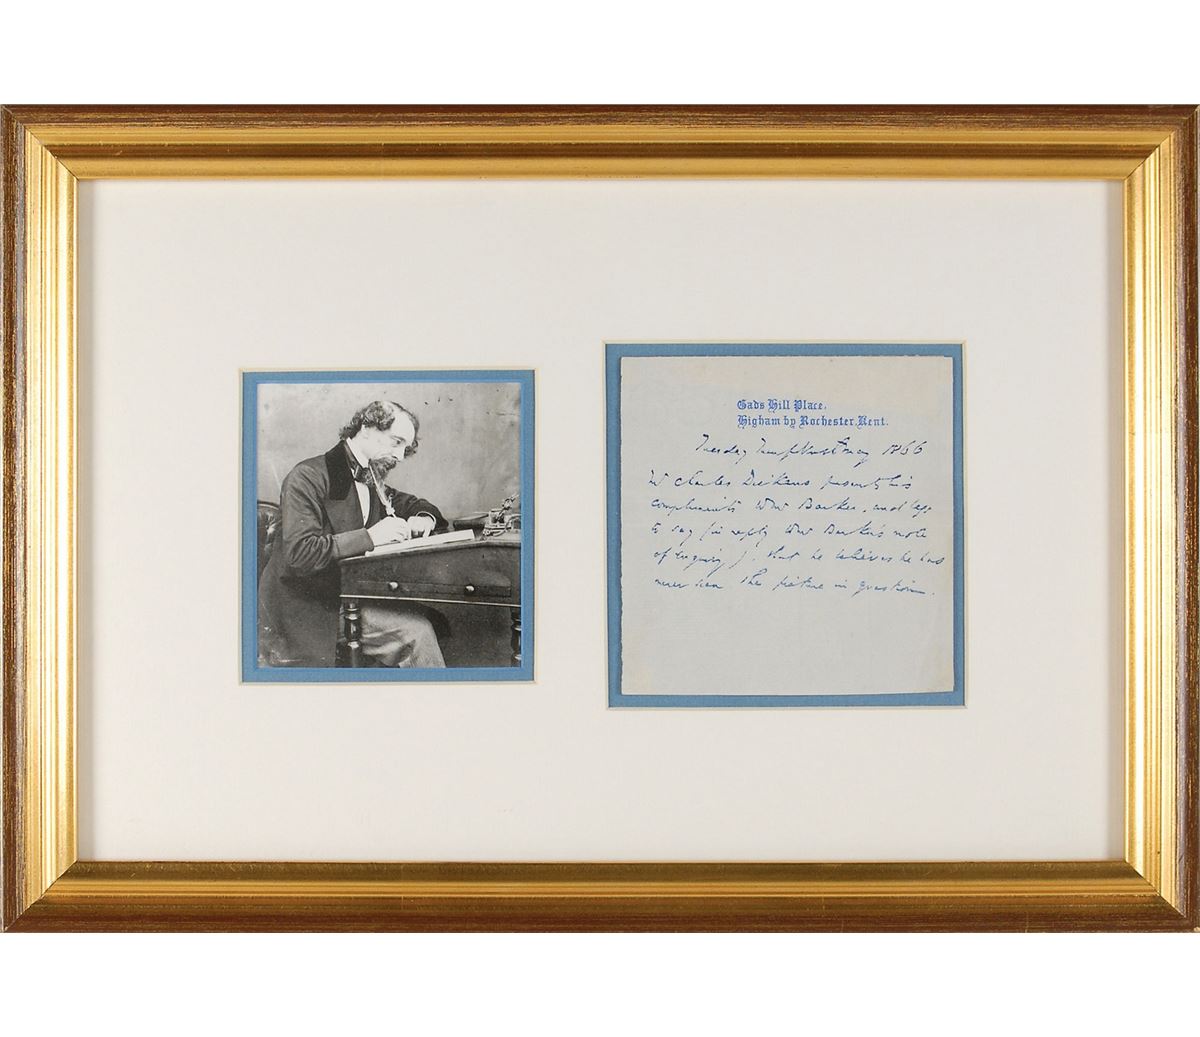 Gads Hill Place,
Higham by Rochester, Kent.
Tuesday May 1866
Mr Charles Dickens presents his
compliments to Mr Barker, and begs
to say (in reply to Mr Barker's note
of enquiry), that he believes he has
never seen the picture in question.